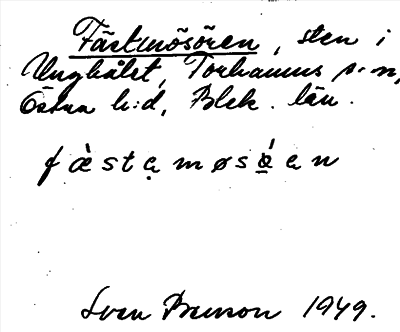 Fästmösören, sten i
Unghålet, Torhamns s:n,
Östra h:d, Blek. län.
fæ̀stₑmøsǿₑn
Sven Benson 1949.